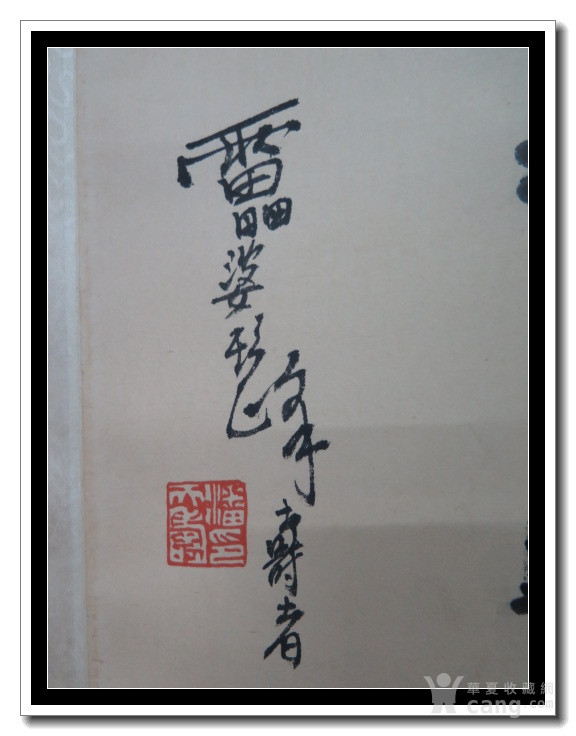 靁婆頭峰壽者
潘天壽印
華夏收藏網
cang.com